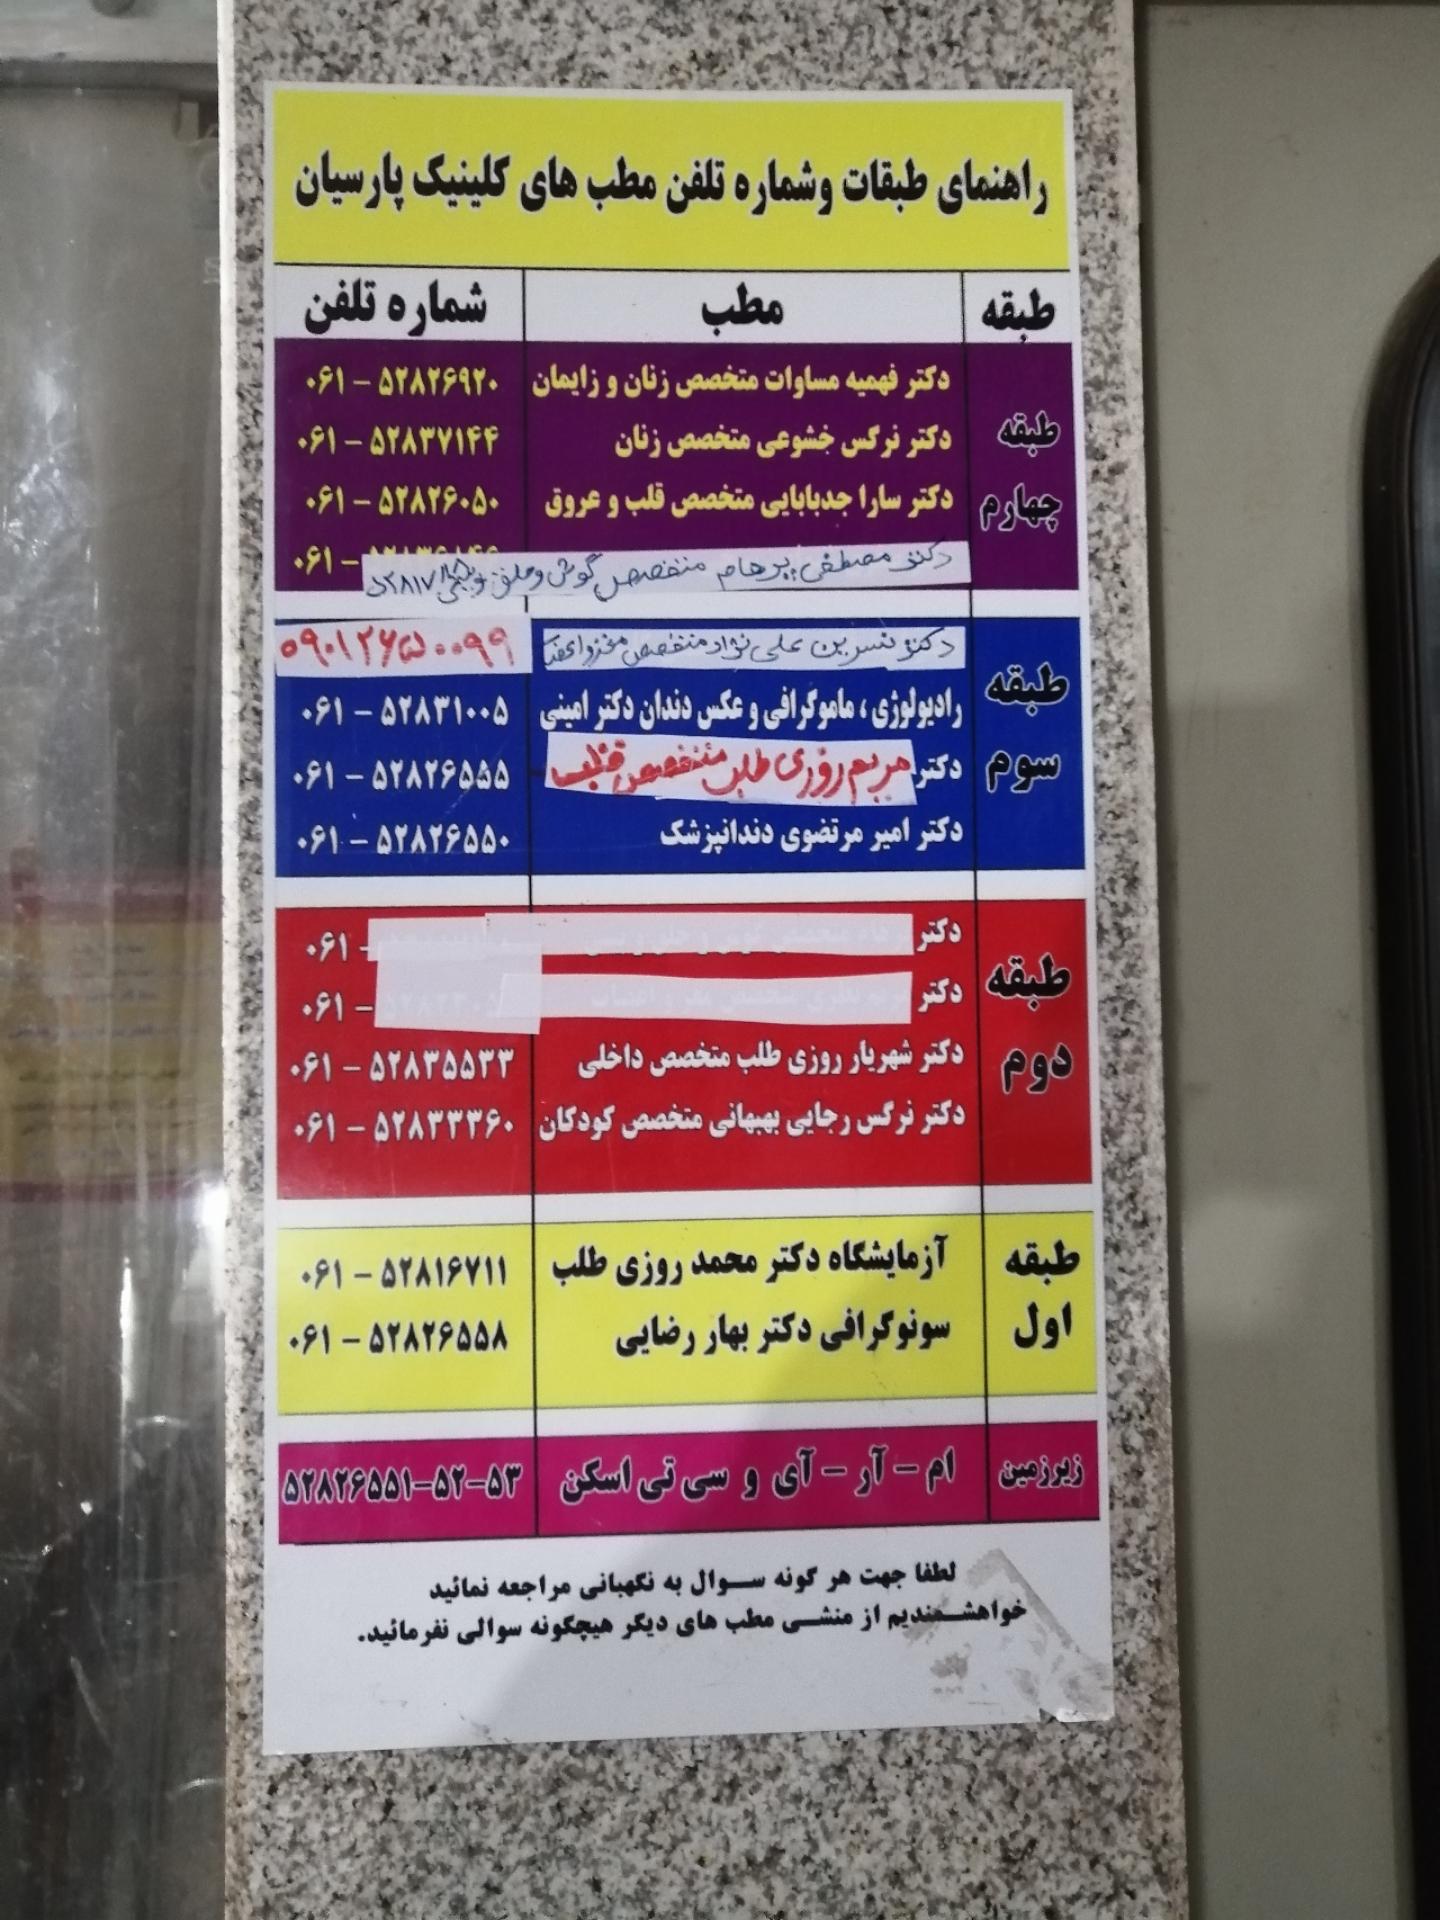 راهنمای طبقات وشماره تلفن مطب های کلینیک پارسیان
طبقه مطب شماره تلفن
طبقه چهارم
دکتر فهمیه مساوات متخصص زنان و زایمان ۵۲۸۲۶۹۲۰ – ۰۶۱
دکتر نرگس خشوعی متخصص زنان ۵۲۸۳۷۱۴۴ – ۰۶۱
دکتر سارا جدبابایی متخصص قلب و عروق ۵۲۸۲۶۰۵۰ – ۰۶۱
دکتر مصطفی پرهام متخصص گوش و حلق و بینی – ۰۶۱
طبقه سوم
دکتر نسرین علی نژاد متخصص مغز و اعصاب ۰۹۰۱۲۶۵۰۰۹۹
رادیولوژی ، ماموگرافی و عکس دندان دکتر امینی ۵۲۸۳۱۰۰۵ – ۰۶۱
دکتر مریم روزی طلب متخصص قلب ۵۲۸۲۶۵۵۵ – ۰۶۱
دکتر امیر مرتضوی دندانپزشک ۵۲۸۲۶۵۵۰ – ۰۶۱
طبقه دوم
دکتر – ۰۶۱
دکتر – ۰۶۱
دکتر شهریار روزی طلب متخصص داخلی ۵۲۸۳۵۵۳۳ – ۰۶۱
دکتر نرگس رجایی بهبهانی متخصص کودکان ۵۲۸۳۳۳۶۰ – ۰۶۱
طبقه اول
آزمایشگاه دکتر محمد روزی طلب ۵۲۸۱۶۷۱۱ – ۰۶۱
سونوگرافی دکتر بهار رضایی ۵۲۸۲۶۵۵۸ – ۰۶۱
زیرزمین ام – آر – آی و سی تی اسکن ۵۲۸۲۶۵۵۱–۵۲–۵۳
لطفا جهت هر گونه سوال به نگهبانی مراجعه نمائید
خواهشمندیم از منشی مطب های دیگر هیچگونه سوالی نفرمائید.